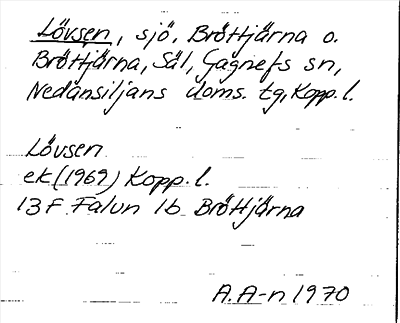 Lövsen, sjö, Bröttjärna o.
Bröttjärna, Säl, Gagnefs sn,
Nedansiljans doms. tg, Kopp. l.
Lövsen
ek (1969) Kopp. l.
13 F Falun 1b Bröttjärna
A. A-n 1970